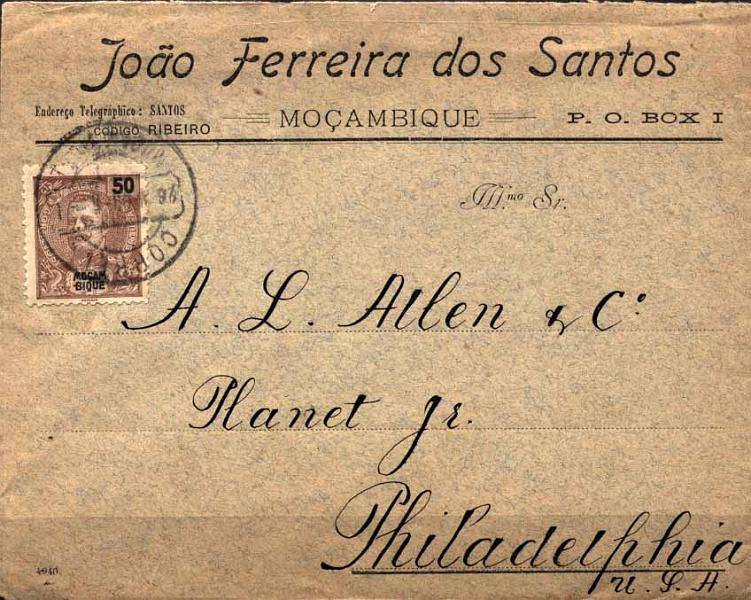 João Ferreira dos Santos
Endereço Telegraphico: SANTOS
CODIGO RIBEIRO
MOÇAMBIQUE
P. O. BOX I
50
MOÇAM
BIQUE
Ill.mo Sr.
A. L. Allen & Co.
Planet Jr.
Philadelphia
U. S. A.
4940